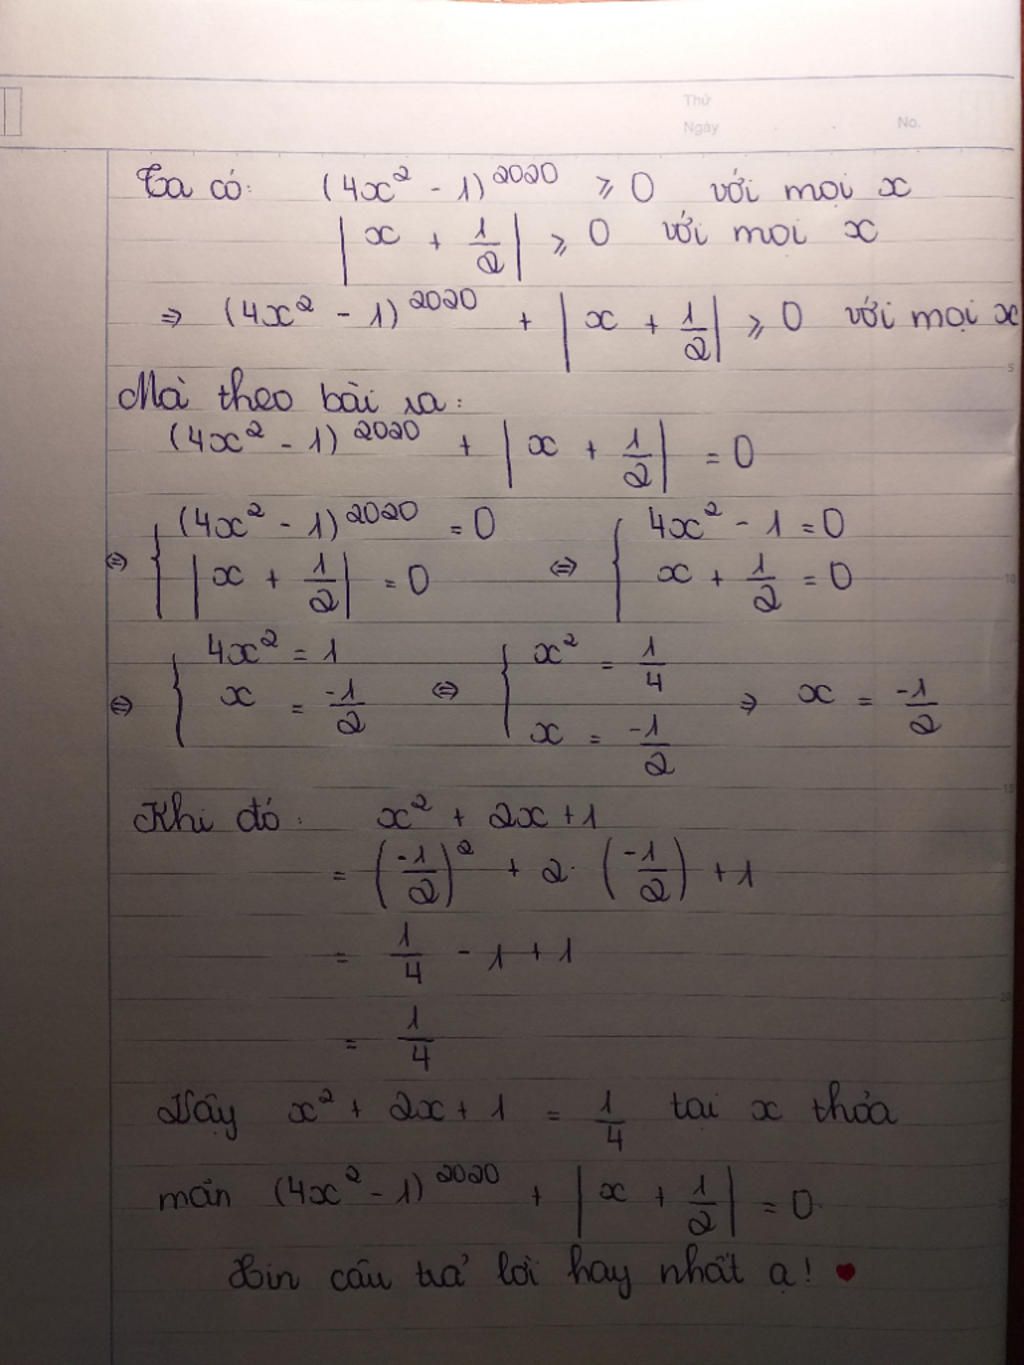 Thứ
Ngày No.
Ta có: (4x² - 1)²⁰²⁰ ⩾ 0 với mọi x
|x + 1/2| ⩾ 0 với mọi x
⇒ (4x² - 1)²⁰²⁰ + |x + 1/2| ⩾ 0 với mọi x
Mà theo bài ra:
(4x² - 1)²⁰²⁰ + |x + 1/2| = 0
⇔ { (4x² - 1)²⁰²⁰ = 0 ⇔ { 4x² - 1 = 0
|x + 1/2| = 0 x + 1/2 = 0
⇔ { 4x² = 1 ⇔ { x² = 1/4
x = -1/2 x = -1/2 ⇒ x = -1/2
Khi đó: x² + 2x + 1
= (-1/2)² + 2. (-1/2) + 1
= 1/4 - 1 + 1
= 1/4
Vậy x² + 2x + 1 = 1/4 tại x thỏa
mãn (4x² - 1)²⁰²⁰ + |x + 1/2| = 0.
Xin câu trả lời hay nhất ạ! ♥